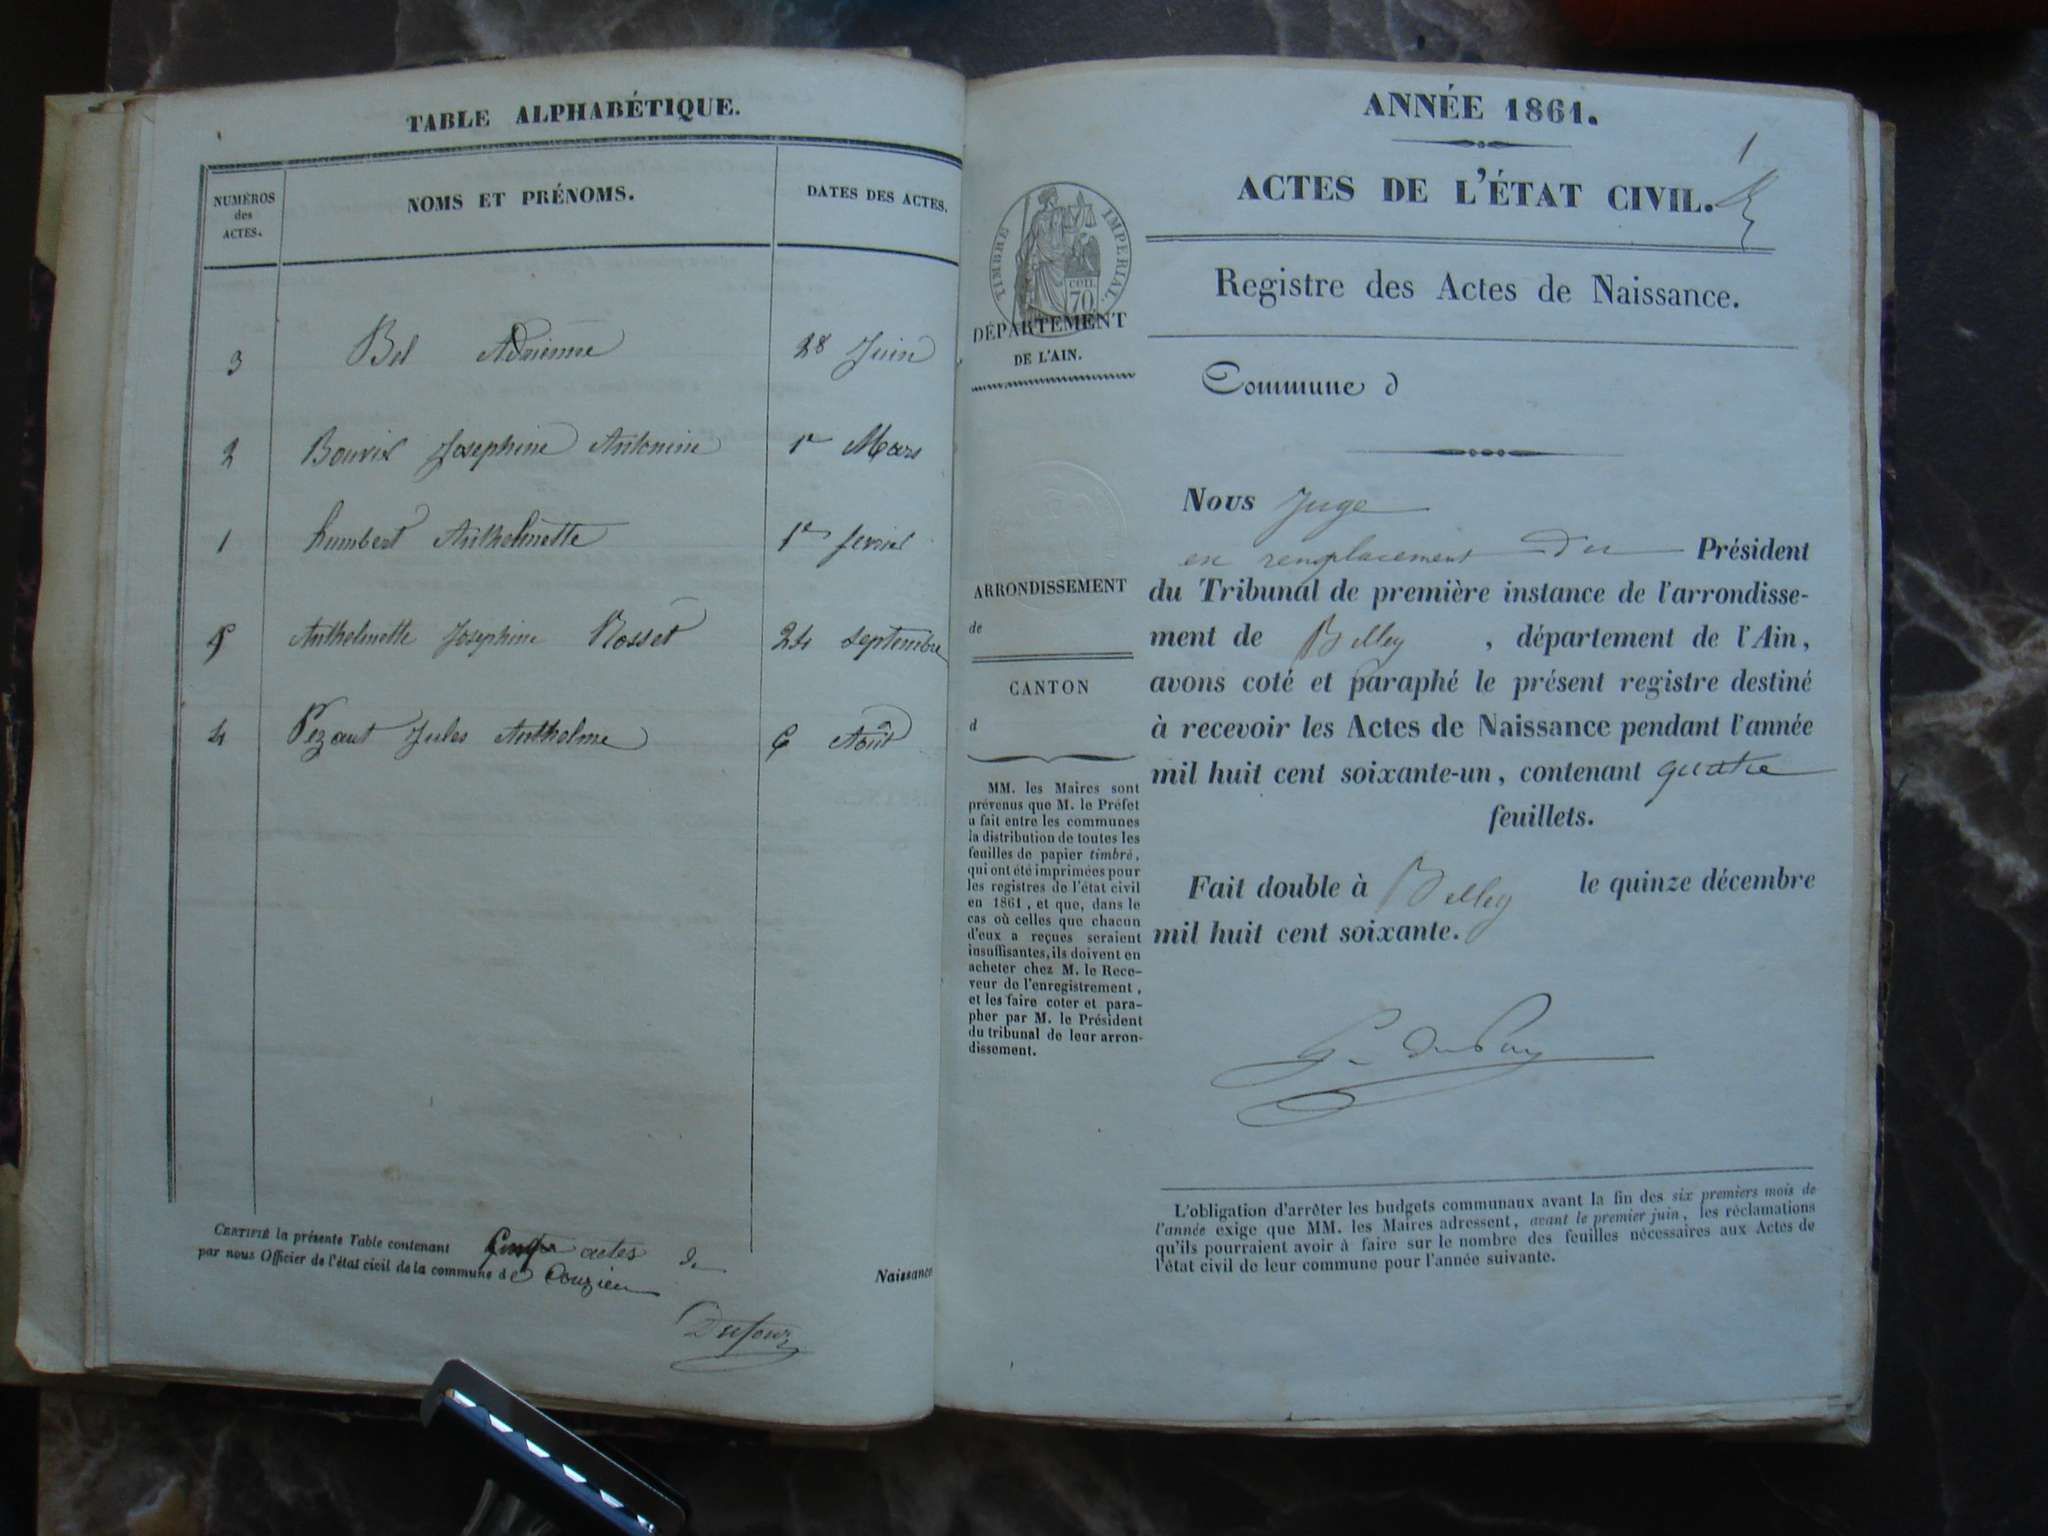 TABLE ALPHABÉTIQUE.
NUMÉROS
des
ACTES.
NOMS ET PRÉNOMS.
DATES DES ACTES.
3 Bel Adrienne 28 Juin
2 Bouvier Josephine Antonine 1er Mars
1 humbert Anthelmette 1er fevrier
5 Anthelmette Josephine Rosset 24 Septembre
4 Pezant Jules Anthelme 6 Août
CERTIFIÉ la présente Table contenant Cinq actes de Naissance
par nous Officier de l'état civil de la commune de Conzieu
Dufour
ANNÉE 1861.
1
ACTES DE L'ÉTAT CIVIL.
Registre des Actes de Naissance.
TIMBRE IMPÉRIAL.
COIT.
70
DÉPARTEMENT
DE L'AIN.
Commune d
ARRONDISSEMENT
de
CANTON
d
MM. les Maires sont
prévenus que M. le Préfet
a fait entre les communes
la distribution de toutes les
feuilles de papier timbré,
qui ont été imprimées pour
les registres de l'état civil
en 1861, et que, dans le
cas où celles que chacun
d'eux a reçues seraient
insuffisantes, ils doivent en
acheter chez M. le Rece-
veur de l'enregistrement,
et les faire coter et para-
pher par M. le Président
du tribunal de leur arron-
dissement.
Nous Juge
en remplacement du Président
du Tribunal de première instance de l'arrondisse-
ment de Belley , département de l'Ain,
avons coté et paraphé le présent registre destiné
à recevoir les Actes de Naissance pendant l'année
mil huit cent soixante-un, contenant quatre
feuillets.
Fait double à Belley le quinze décembre
mil huit cent soixante.
L'obligation d'arrêter les budgets communaux avant la fin des six premiers mois de
l'année exige que MM. les Maires adressent, avant le premier juin, les réclamations
qu'ils pourraient avoir à faire sur le nombre des feuilles nécessaires aux Actes de
l'état civil de leur commune pour l'année suivante.